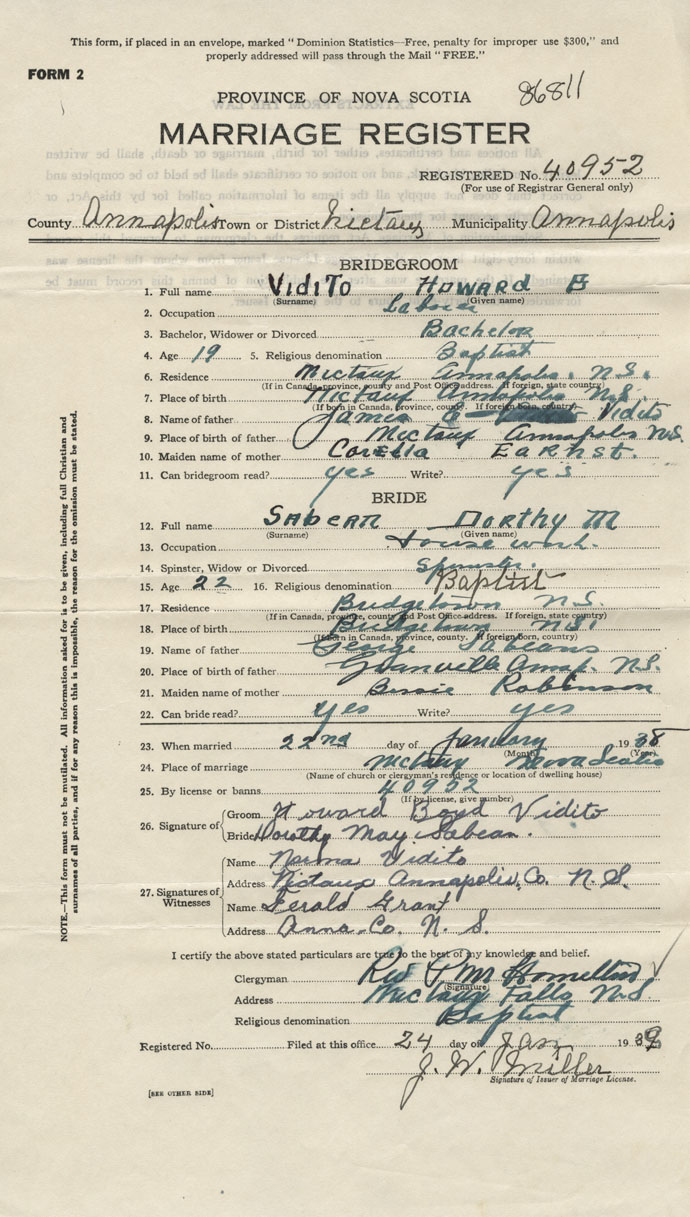 This form, if placed in an envelope, marked "Dominion Statistics—Free, penalty for improper use $300," and
properly addressed will pass through the Mail "FREE."
FORM 2
PROVINCE OF NOVA SCOTIA 86811
MARRIAGE REGISTER
REGISTERED No. 40952
(For use of Registrar General only)
County Annapolis Town or District Nictaux Municipality Annapolis
BRIDEGROOM
1. Full name VIDITO HOWARD B
(Surname) (Given name)
2. Occupation Laborer
3. Bachelor, Widower or Divorced Bachelor
4. Age 19 5. Religious denomination Baptist
6. Residence Nictaux Annapolis. N.S.
(If in Canada, province, county and Post Office address. If foreign, state country)
7. Place of birth Nictaux Annapolis N.S.
(If born in Canada, province, county. If foreign born, country)
8. Name of father James Vidito
9. Place of birth of father Nictaux Annapolis N.S.
10. Maiden name of mother Corella Earnst.
11. Can bridegroom read? yes Write? yes
BRIDE
12. Full name SABEAN DORTHY M
(Surname) (Given name)
13. Occupation House work.
14. Spinster, Widow or Divorced Spinster.
15. Age 22 16. Religious denomination Baptist
17. Residence Bridgetown N.S.
(If in Canada, province, county and Post Office address. If foreign, state country)
18. Place of birth N.S.
(If born in Canada, province, county. If foreign born, country)
19. Name of father George Sabeans
20. Place of birth of father Granville Annap. N.S.
21. Maiden name of mother Bessie Robinson
22. Can bride read? yes Write? yes
23. When married 22nd day of January 1938
(Month) (Year)
24. Place of marriage Nictaux Nova Scotia
(Name of church or clergyman's residence or location of dwelling house)
25. By license or banns 40952
(If by license, give number)
26. Signature of Groom Howard Boyd Vidito
Bride Dorothy May Sabean.
27. Signatures of Witnesses
Name Norma Vidito
Address Nictaux Annapolis, Co. N.S.
Name Gerald Grant
Address Anna. Co. N.S.
I certify the above stated particulars are true to the best of my knowledge and belief.
Clergyman Rev Hamilton
(Signature)
Address Nictaux Falls N.S.
Religious denomination Baptist
Registered No. Filed at this office 24 day of Jan 193
J. W. Miller
Signature of Issuer of Marriage License.
[SEE OTHER SIDE]
NOTE.—This form must not be mutilated. All information asked for is to be given, including full Christian and
surnames of all parties, and if for any reason this is impossible, the reason for the omission must be stated.